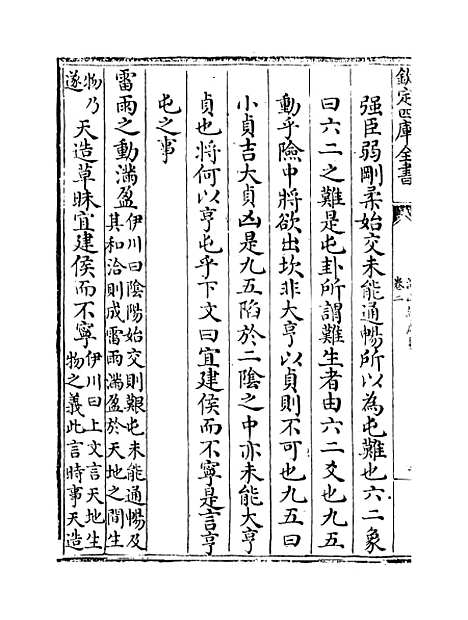 欽定四庫全書
卷二
强臣弱剛柔始交未能通暢所以為屯難也六二象
曰六二之難是屯卦所謂難生者由六二爻也九五
動乎險中將欲出坎非大亨以貞則不可也九五曰
小貞吉大貞凶是九五陷於二陰之中亦未能大亨
貞也將何以亨屯乎下文曰宜建侯而不寧是言亨
屯之事
雷雨之動滿盈伊川曰陰陽始交則艱屯未能通暢及
其和洽則成雷雨滿盈於天地之間生
物乃
遂天造草昧宜建侯而不寧伊川曰上文言天地生
物之義此言時事天造